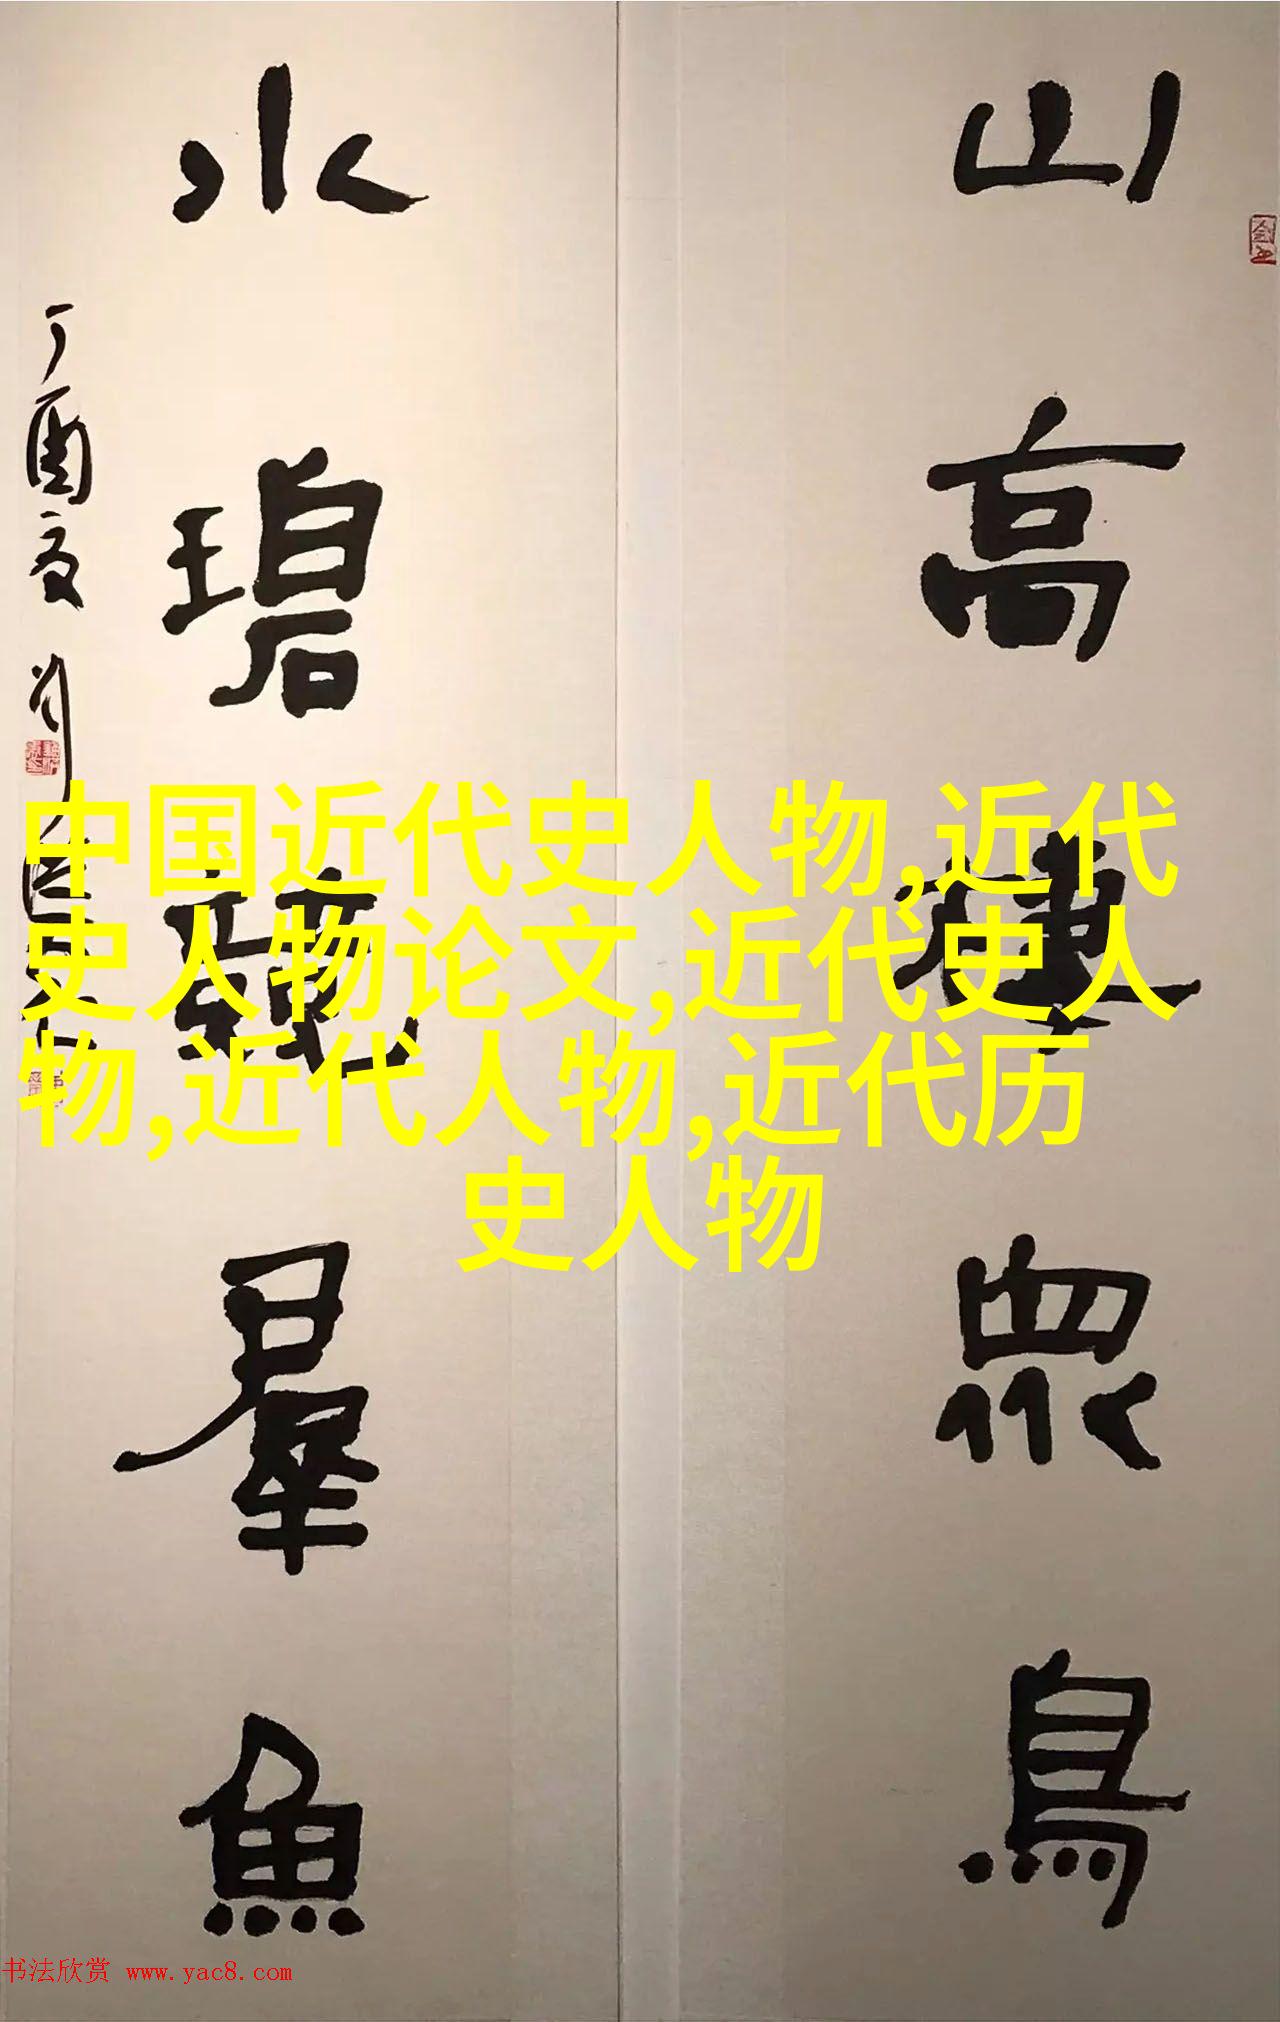 山高棲眾鳥
水碧競羣魚
丁酉夏 刘
中国近代史人物,近代
史人物论文,近代史人
物,近代人物,近代历
史人物
书法欣赏 www.yac8.com